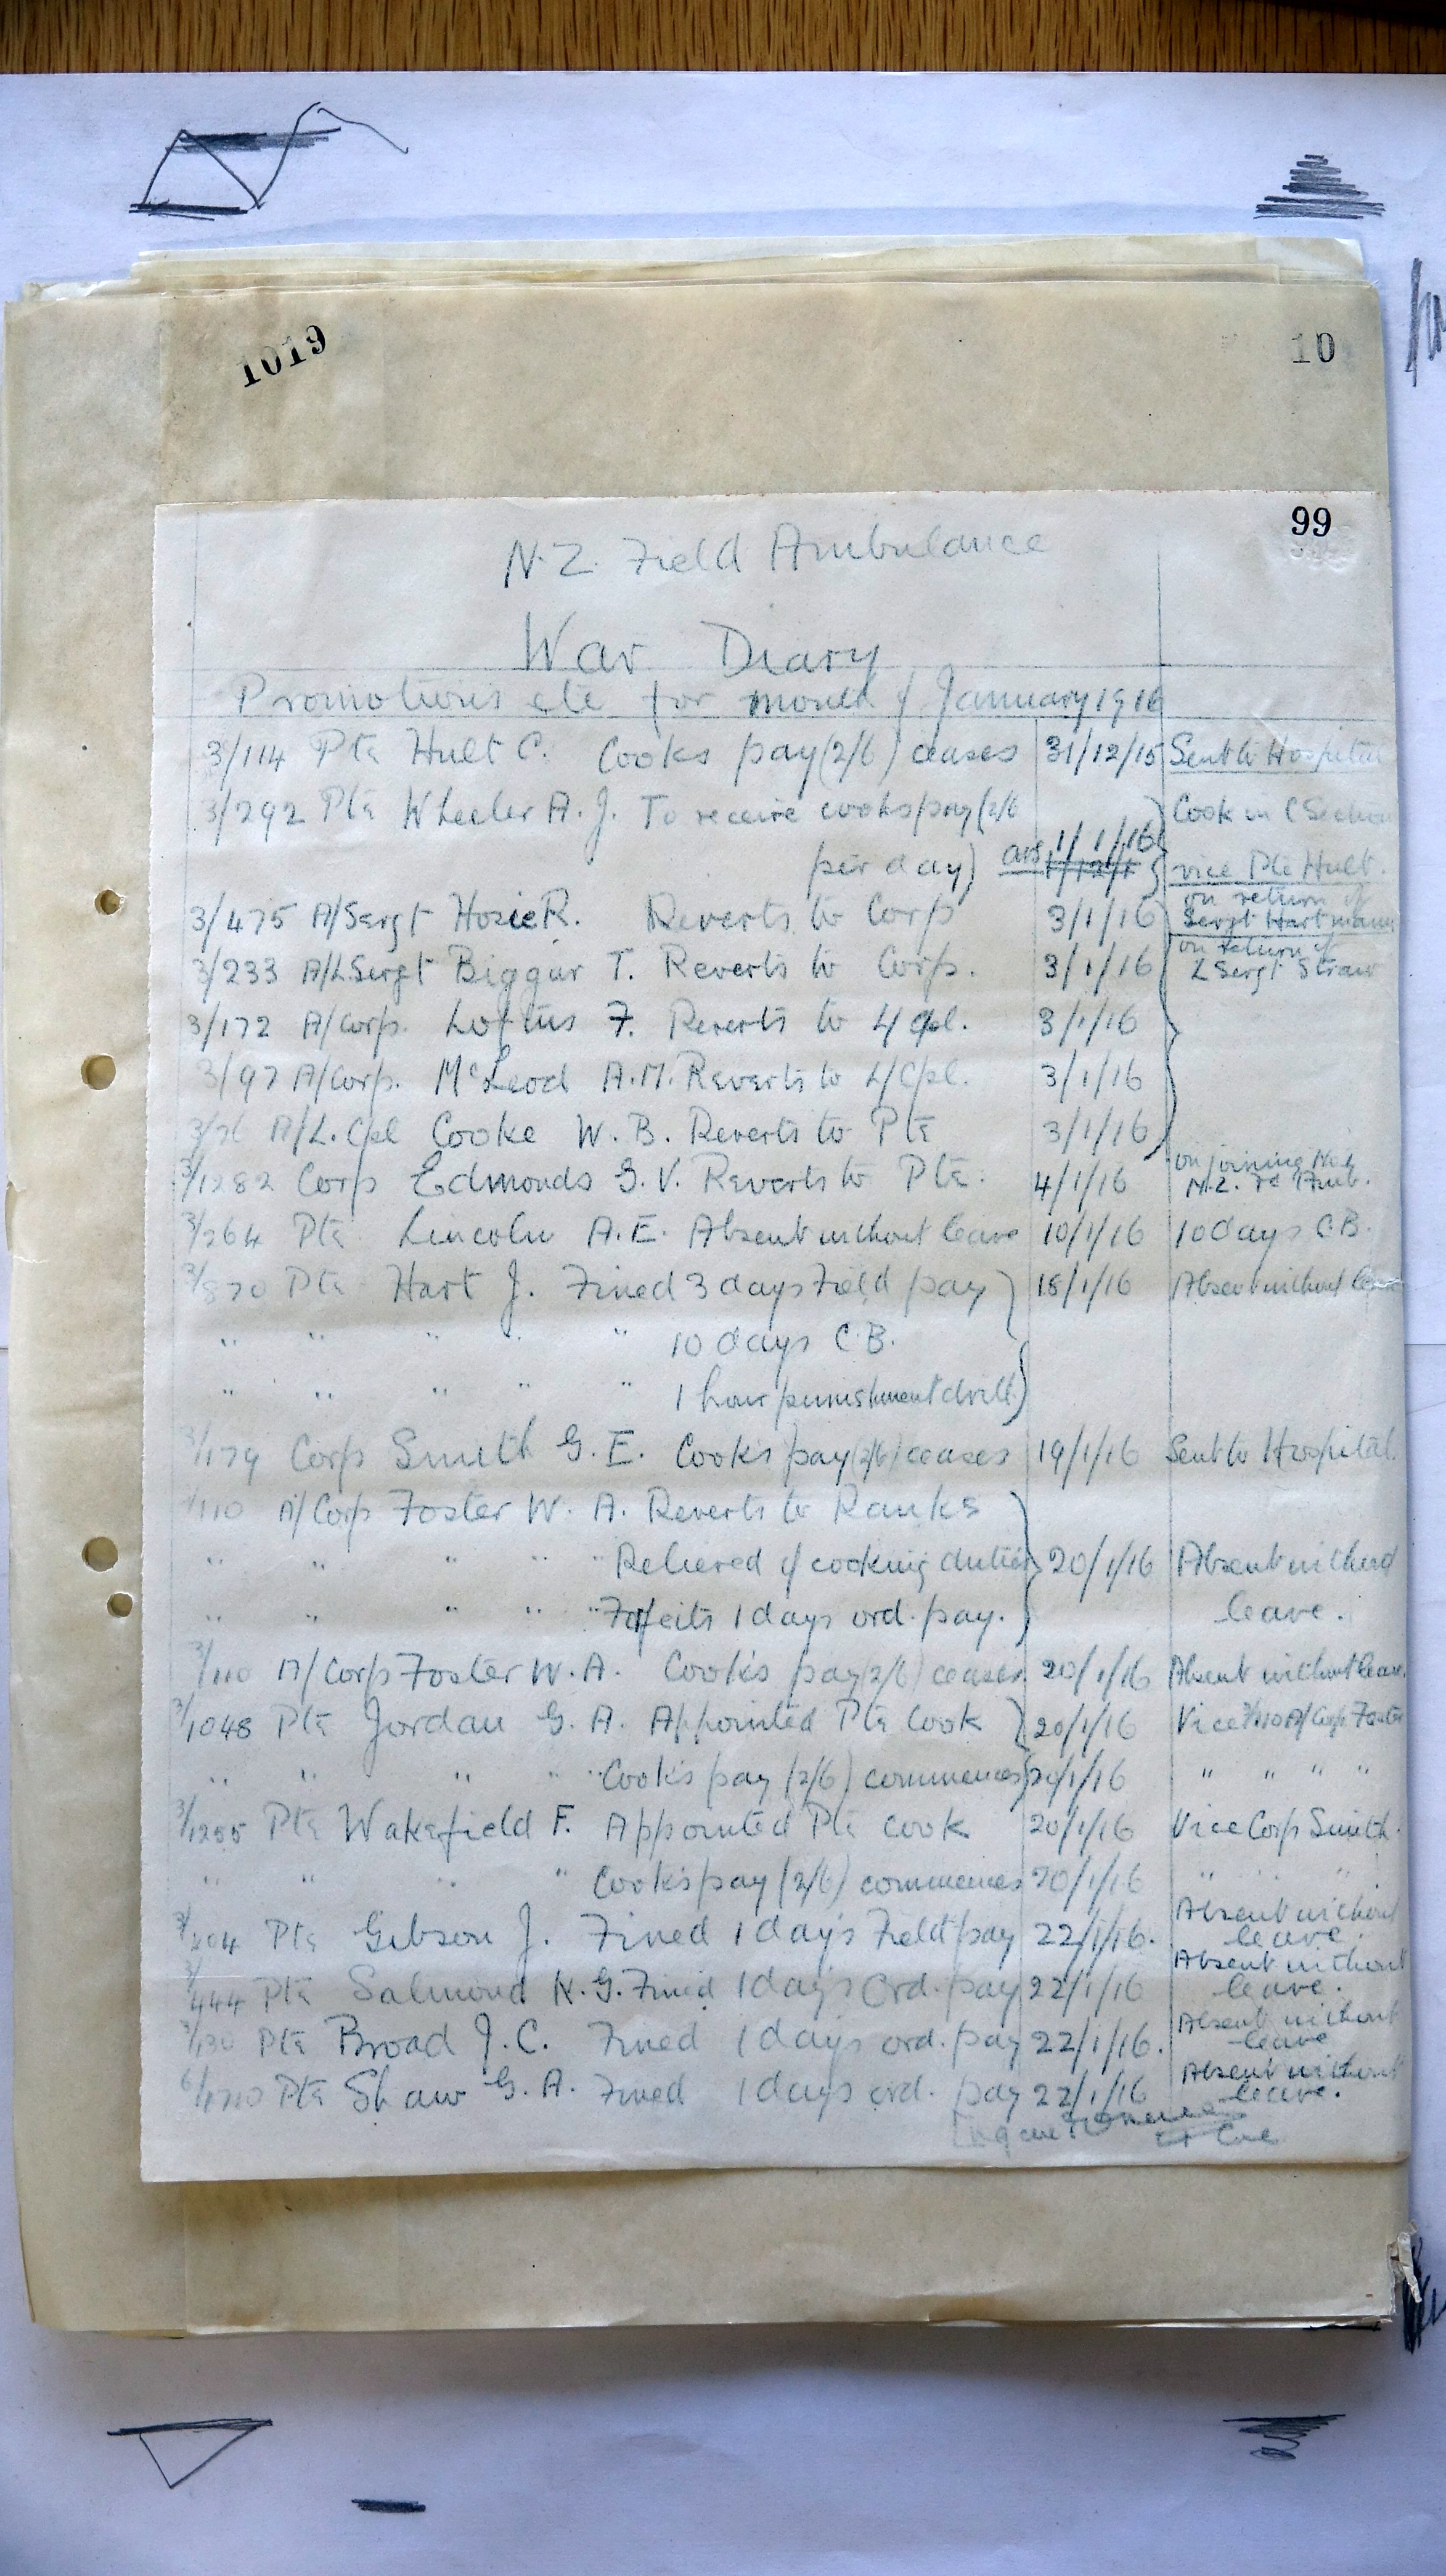 1019
10
99
N.Z. Field Ambulance
War Diary
Promotions etc for month of January 1916
3/114 Pte Hult C. Cooks pay (2/6) ceases 31/12/15 Sent to Hospital
3/292 Pte Wheeler A. J. To receive cooks pay (2/6 Cook in C Section
per day) 1/1/16 vice Pte Hult.
3/475 A/Sergt Hosie R. Reverts to Corp 3/1/16 on return of Sergt Hartmann
3/233 A/L Sergt Biggar T. Reverts to Corp. 3/1/16 on return of L Sergt Straw
3/172 A/Corp. Loftus F. Reverts to L/Cpl. 3/1/16
3/97 A/Corp. McLeod A.M. Reverts to L/Cpl. 3/1/16
3/26 A/L. Cpl Cooke W. B. Reverts to Pte 3/1/16
3/1282 Corp Edmonds G. V. Reverts to Pte. 4/1/16 on joining No 1 N.Z. Fd Amb.
3/264 Pte Lincoln A. E. Absent without leave 10/1/16 10 days C.B.
3/870 Pte Hart J. Fined 3 days Field pay 18/1/16 Absent without leave
" " " " " 10 days C.B.
" " " " " 1 hour punishment drill
3/179 Corp Smith G. E. Cook's pay (2/6) ceases 19/1/16 Sent to Hospital.
3/110 A/Corp Foster W. A. Reverts to Ranks
" " " " " Relieved of cooking duties 20/1/16 Absent without
" " " " " Forfeits 1 days ord. pay. leave.
3/110 A/Corp Foster W. A. Cook's pay (2/6) ceases 20/1/16 Absent without leave.
3/1048 Pte Jordan G. A. Appointed Pte Cook 20/1/16 Vice 3/110 A/Corp Foster
" " " " " Cook's pay (2/6) commences 20/1/16 " " " "
3/1255 Pte Wakefield F. Appointed Pte cook 20/1/16 Vice Corp Smith.
" " " " Cook's pay (2/6) commences 20/1/16 " " "
3/404 Pte Gibson J. Fined 1 day's Field pay 22/1/16. Absent without leave.
3/444 Pte Salmond N. G. Fined 1 day's Ord. pay 22/1/16 Absent without leave.
3/130 Pte Broad J. C. Fined 1 days ord. pay 22/1/16. Absent without leave
6/1710 Pte Shaw G. A. Fined 1 days ord. pay 22/1/16 Absent without leave.